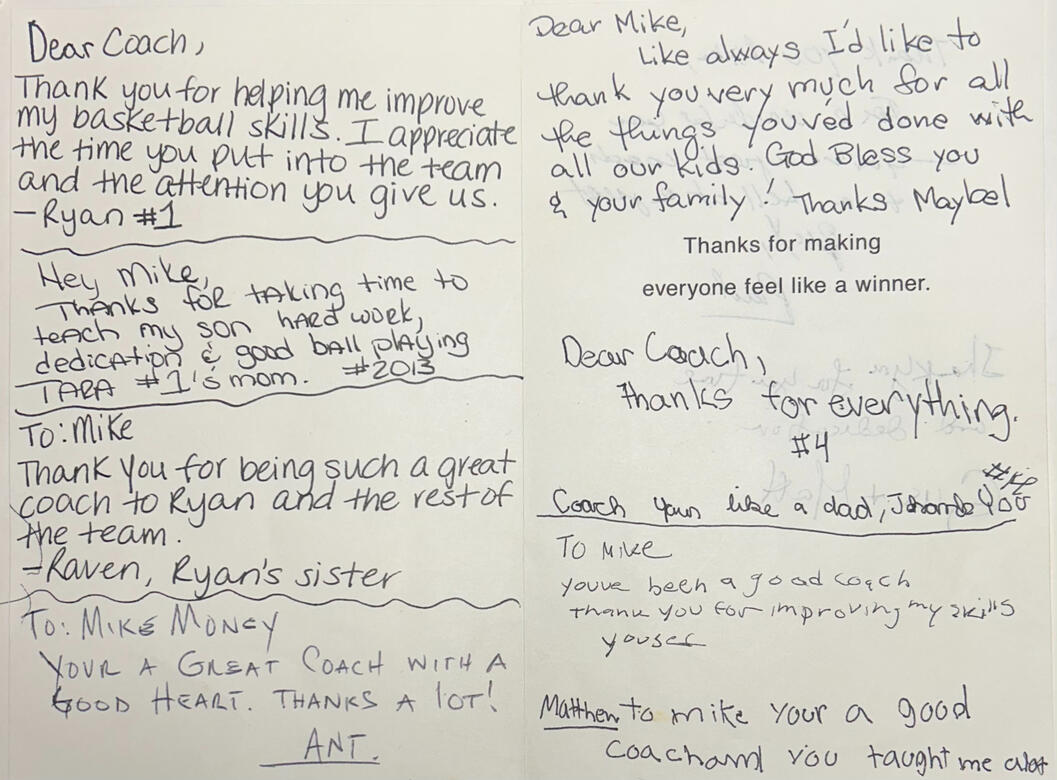 Dear Coach,
Thank you for helping me improve
my basketball skills. I appreciate
the time you put into the team
and the attention you give us.
-Ryan #1
Hey Mike,
Thanks for taking time to
teach my son hard work,
dedication & good ball playing
TARA #1's mom. #2013
To: Mike
Thank you for being such a great
coach to Ryan and the rest of
the team.
-Raven, Ryan's sister
To: MIKE MONEY
YOUR A GREAT COACH WITH A
GOOD HEART. THANKS A lOT!
ANT.
Dear Mike,
Like always I'd like to
thank you very much for all
the things youv'ed done with
all our kids. God Bless you
& your family! Thanks Maybel
Thanks for making
everyone feel like a winner.
Dear Coach,
thanks for everything.
#4
Coach your like a dad, I thank you
To MIKE
youve been a good coach
thank you for improving my skills
yousef
Matthew to mike your a good
coach and you taught me alot